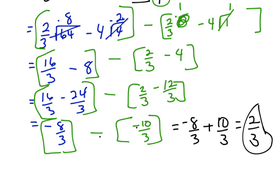 = [2/3 · 8 √64 - 4 · 2 √4] - [2/3 - 4√1]
= [16/3 - 8] - [2/3 - 4]
= [16/3 - 24/3] - [2/3 - 12/3]
= [-8/3] - [-10/3] = -8/3 + 10/3 = 2/3